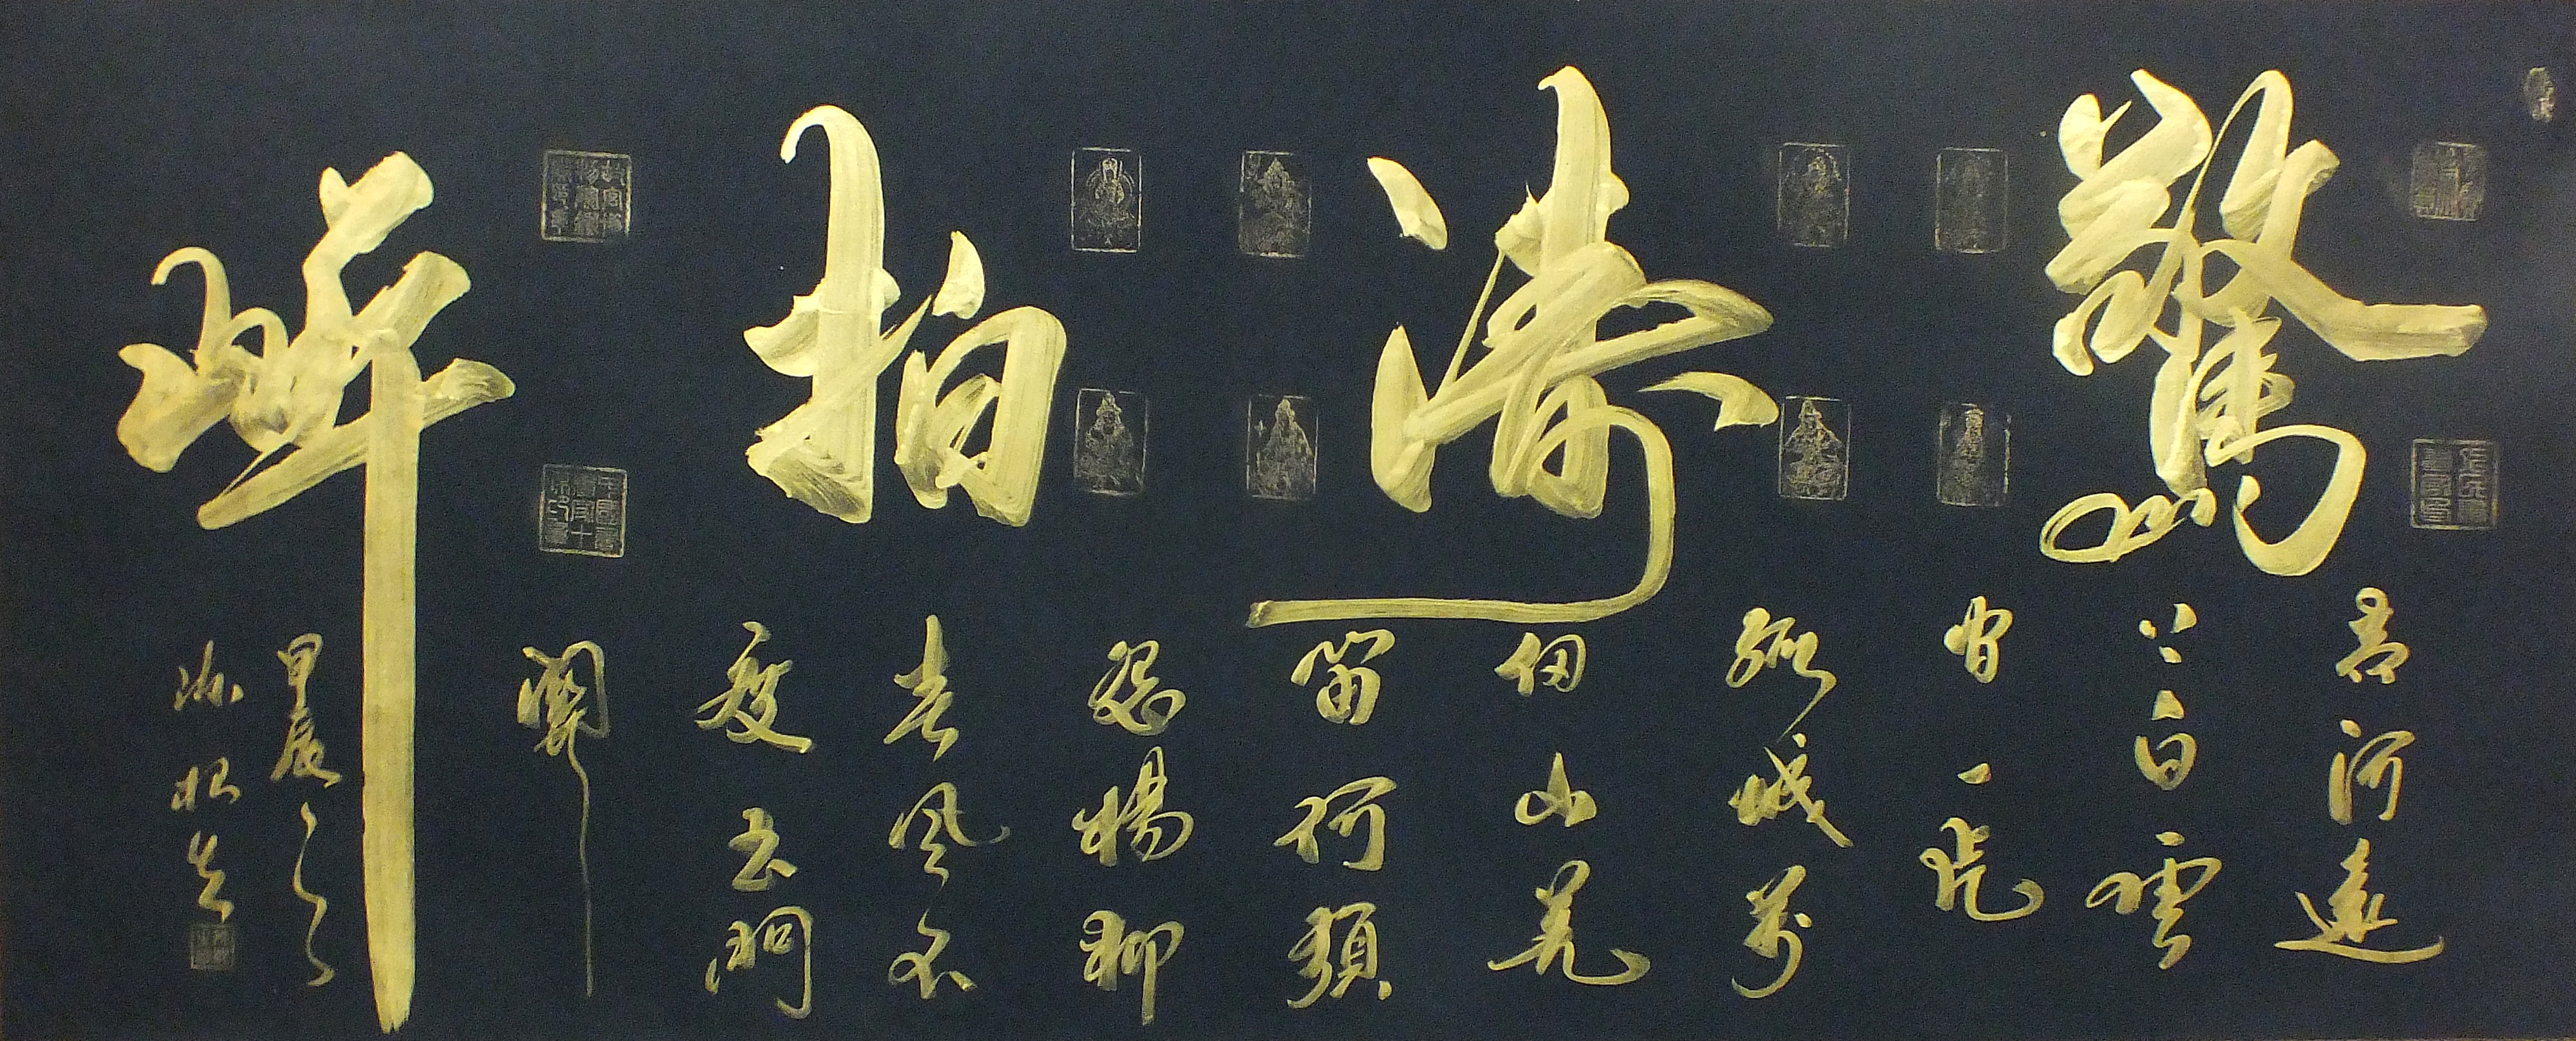 驚濤拍岸
黃河遠
上白雲
間一片
孤城萬
仞山羌
笛何須
怨楊柳
春風不
度玉門
關
甲辰